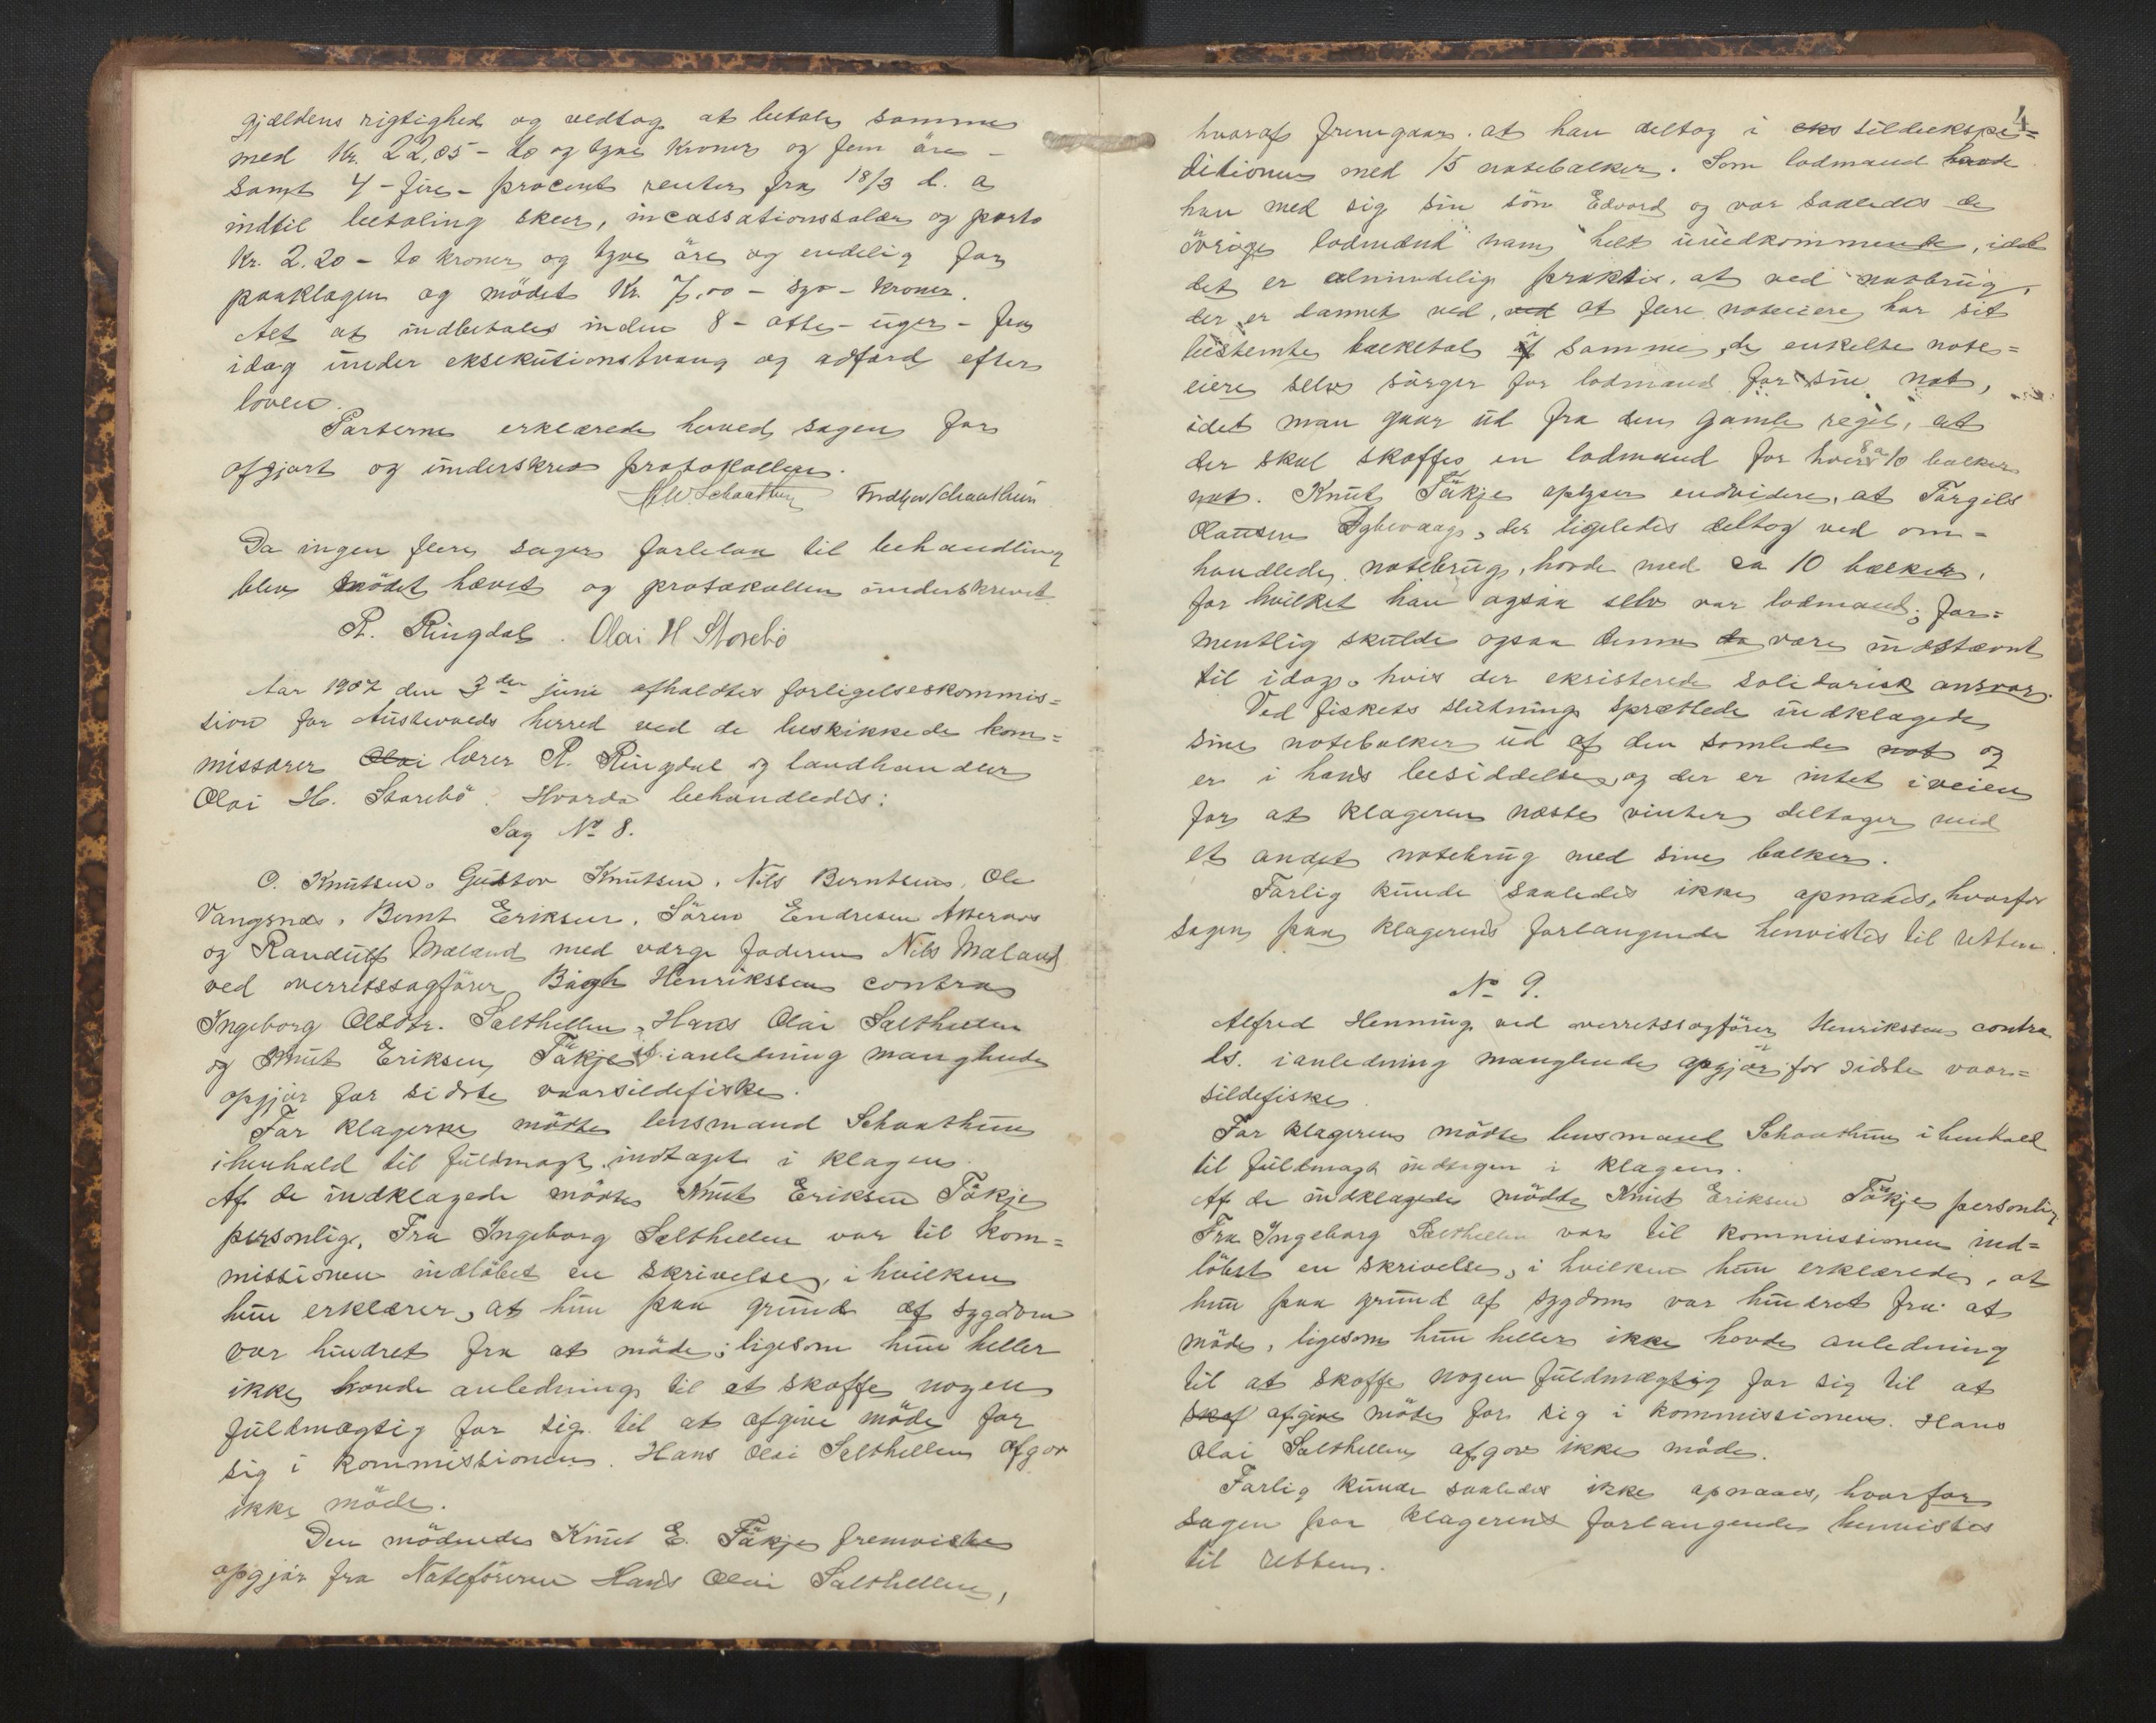 gjældens rigtighed og vedtog at betale samme
med Kr. 22,05 - to og tyve kroner og fem öre -
samt 4 - fire - procent renter fra 18/3 d. a
indtil betaling skeer, incassationssalær og porto
Kr. 2.20 - to kroner og tyve öre og endelig for
paaklagen og mödet Kr. 7,00 - syv - kroner.
Alt at indbetales inden 8 - otte - uger - fra
idag under eksekutionstvang og adfærd efter
loven.
Parterne erklærede herved sagen for
afgjort og underskrev protokollen.
Schaathun
Da ingen flere sager forlelaa til behandling
blev mödet hævet og protokollen underskrevet.
R. Ringdal. Olai H Storebö
Aar 1907 den 3den juni afholdtes forligelseskommis=
sion for Austevolds herred ved de beskikkede kom=
missærer Olai lærer R. Ringdal og landhandler
Olai H. Storebö. Hvorda behandledes:
Sag No 8.
O. Knutsen, Gustav Knutsen, Nils Berntsen, Ole
Vangsnes, Bernt Eriksen, Sören Endresen
og Randulf Mæland med værge faderen Nils Mæland
ved overretssagförer Bagh Henrikssen contra
Ingeborg Olsdtr. Salthellen, Hans Olai Salthellen
og Knut Eriksen Täkje i anledning manglende
opgjör for sidste vaarsildefiske.
For klagerne mödte lensmand Schaathun
i henhold til fuldmagt indtaget i klagen.
Af de indklagede mödte Knut Eriksen Täkje
personlig. Fra Ingeborg Salthellen var til kom=
missionen indlöbet en skrivelse, i hvilken
hun erklærer, at hun paa grund af sygdom
var hindret fra at möde; ligesom hun heller
ikke havde anledning til at skaffe nogen
fuldmægtig for sig til at afgive möde for
sig i kommissionen. Hans Olai Salthellen afgav
ikke möde.
Den mödende Knut E. Täkje fremviste
opgjör fra Noteföreren Hans Olai Salthellen,
4
hvoraf fremgaar, at han deltog i eks sildeekspe=
ditionen med 15 notebalker. Som lodmand havde
han med sig sin sön Edvard og var saaledes de
övrige lodmænd ham helt uvedkommende, idet
det er almindelig praktis, at ved notbrug,
der er dannet ved, ved at flere noteeiere har sit
bestemte balketal i samme, de enkelte note=
eiere selv sörger for lodmand for sin not,
idet man gaar ud fra den gamle regel, at
der skal skaffes en lodmand for hver 8 a 10 balker
not. Knut Täkje oplyser endvidere, at Torgils
Clausen, der ligeledes deltog ved om=
handlede notebrug, havde med ca 10 balker,
for hvilket han ogsaa selv var lodmand; for=
mentlig skulde ogsaa denne da være indstævnt
til idag, hvis der eksisterede solidarisk ansvar.
Ved fiskets slutning sprættede indklagede
sine notebalker ud af den samlede not og
er i hans besiddelse, og der er intet iveien
for at klageren næste vinter deltager med
et andet notebrug med sine balker.
Forlig kunde saaledes ikke opnaaes, hvorfor
sagen paa klagerens forlangende henvistes til retten.
No 9.
Alfred Henning ved overretssagförer Henrikssen contra
ds. i anledning manglende opgjör for sidste vaar=
sildefiske.
For klageren mödte lensmand Schaathun i henhold
til fuldmagt indtagen i klagen.
Af de indklagede mödte Knut Eriksen Täkje personlig.
Fra Ingeborg Salthellen var til kommissionen ind=
löbet en skrivelse, i hvilken hun erklærede, at
hun paa grund af sygdom var hindret fra at
möde, ligesom hun heller ikke havde anledning
til at skaffe nogen fuldmægtig for sig til at
skaf afgive möde for sig i kommissionen. Hans
Olai Salthellen afgav ikke möde.
Forlig kunde saaledes ikke opnaaes, hvorfor
sagen paa klagerens forlangende henvistes
til retten.